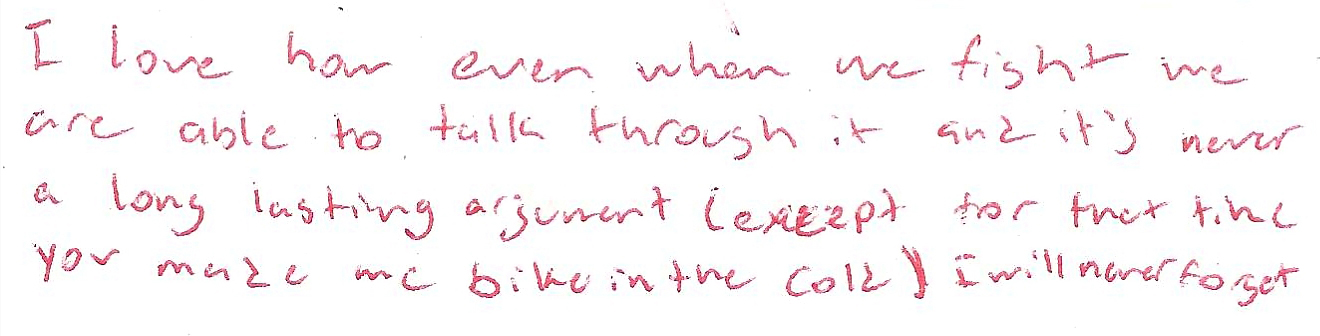 I love how even when we fight we
are able to talk through it and it's never
a long lasting argument (except for that time
you made me bike in the cold) I will never forget